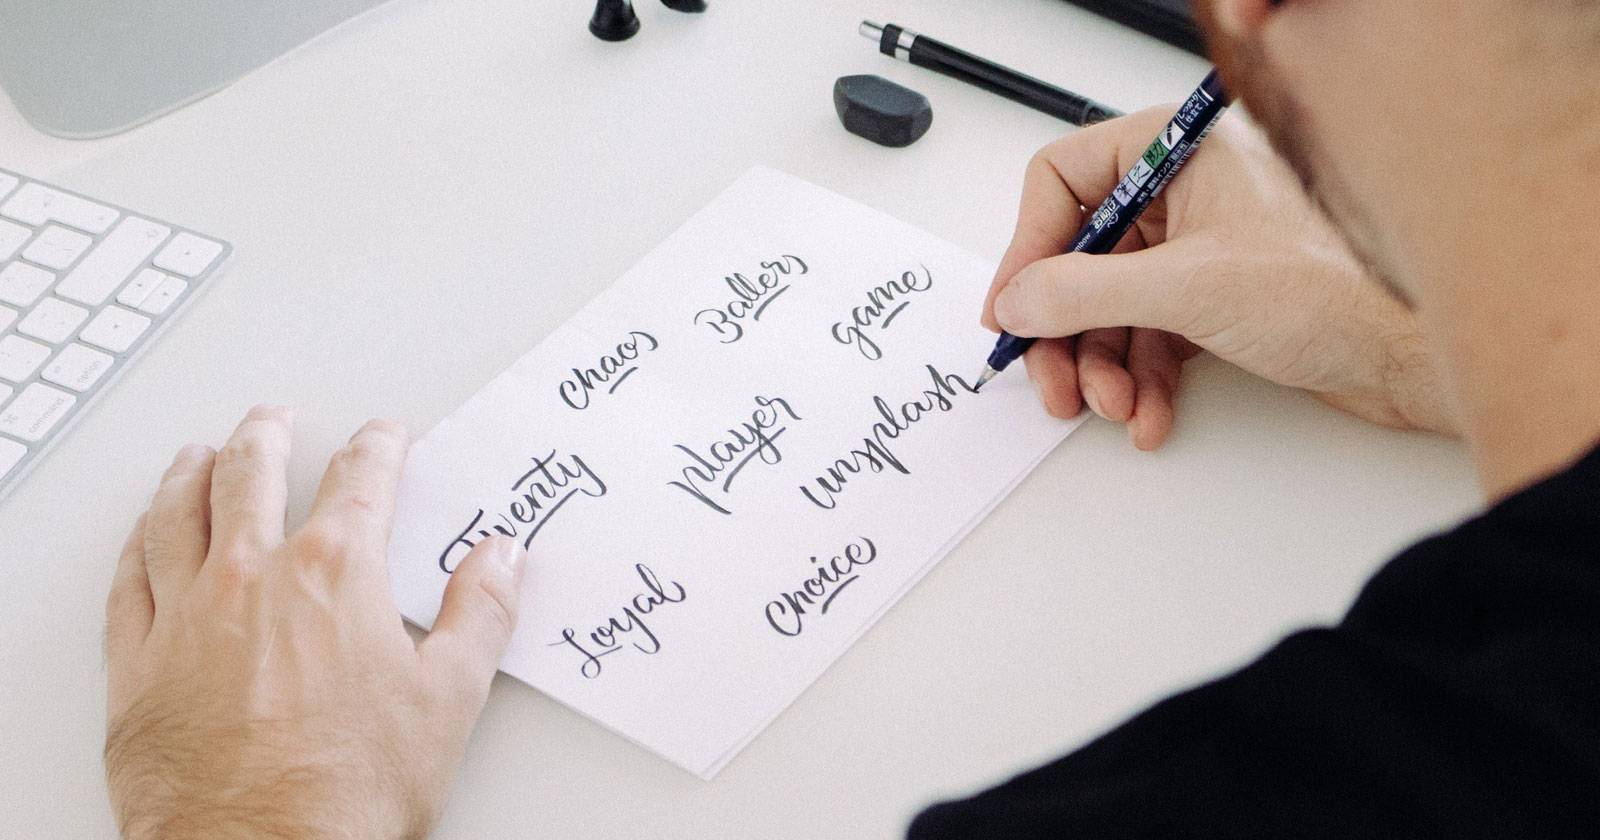 Chaos Ballers game
Twenty player unsplash
Loyal Choice
command
option